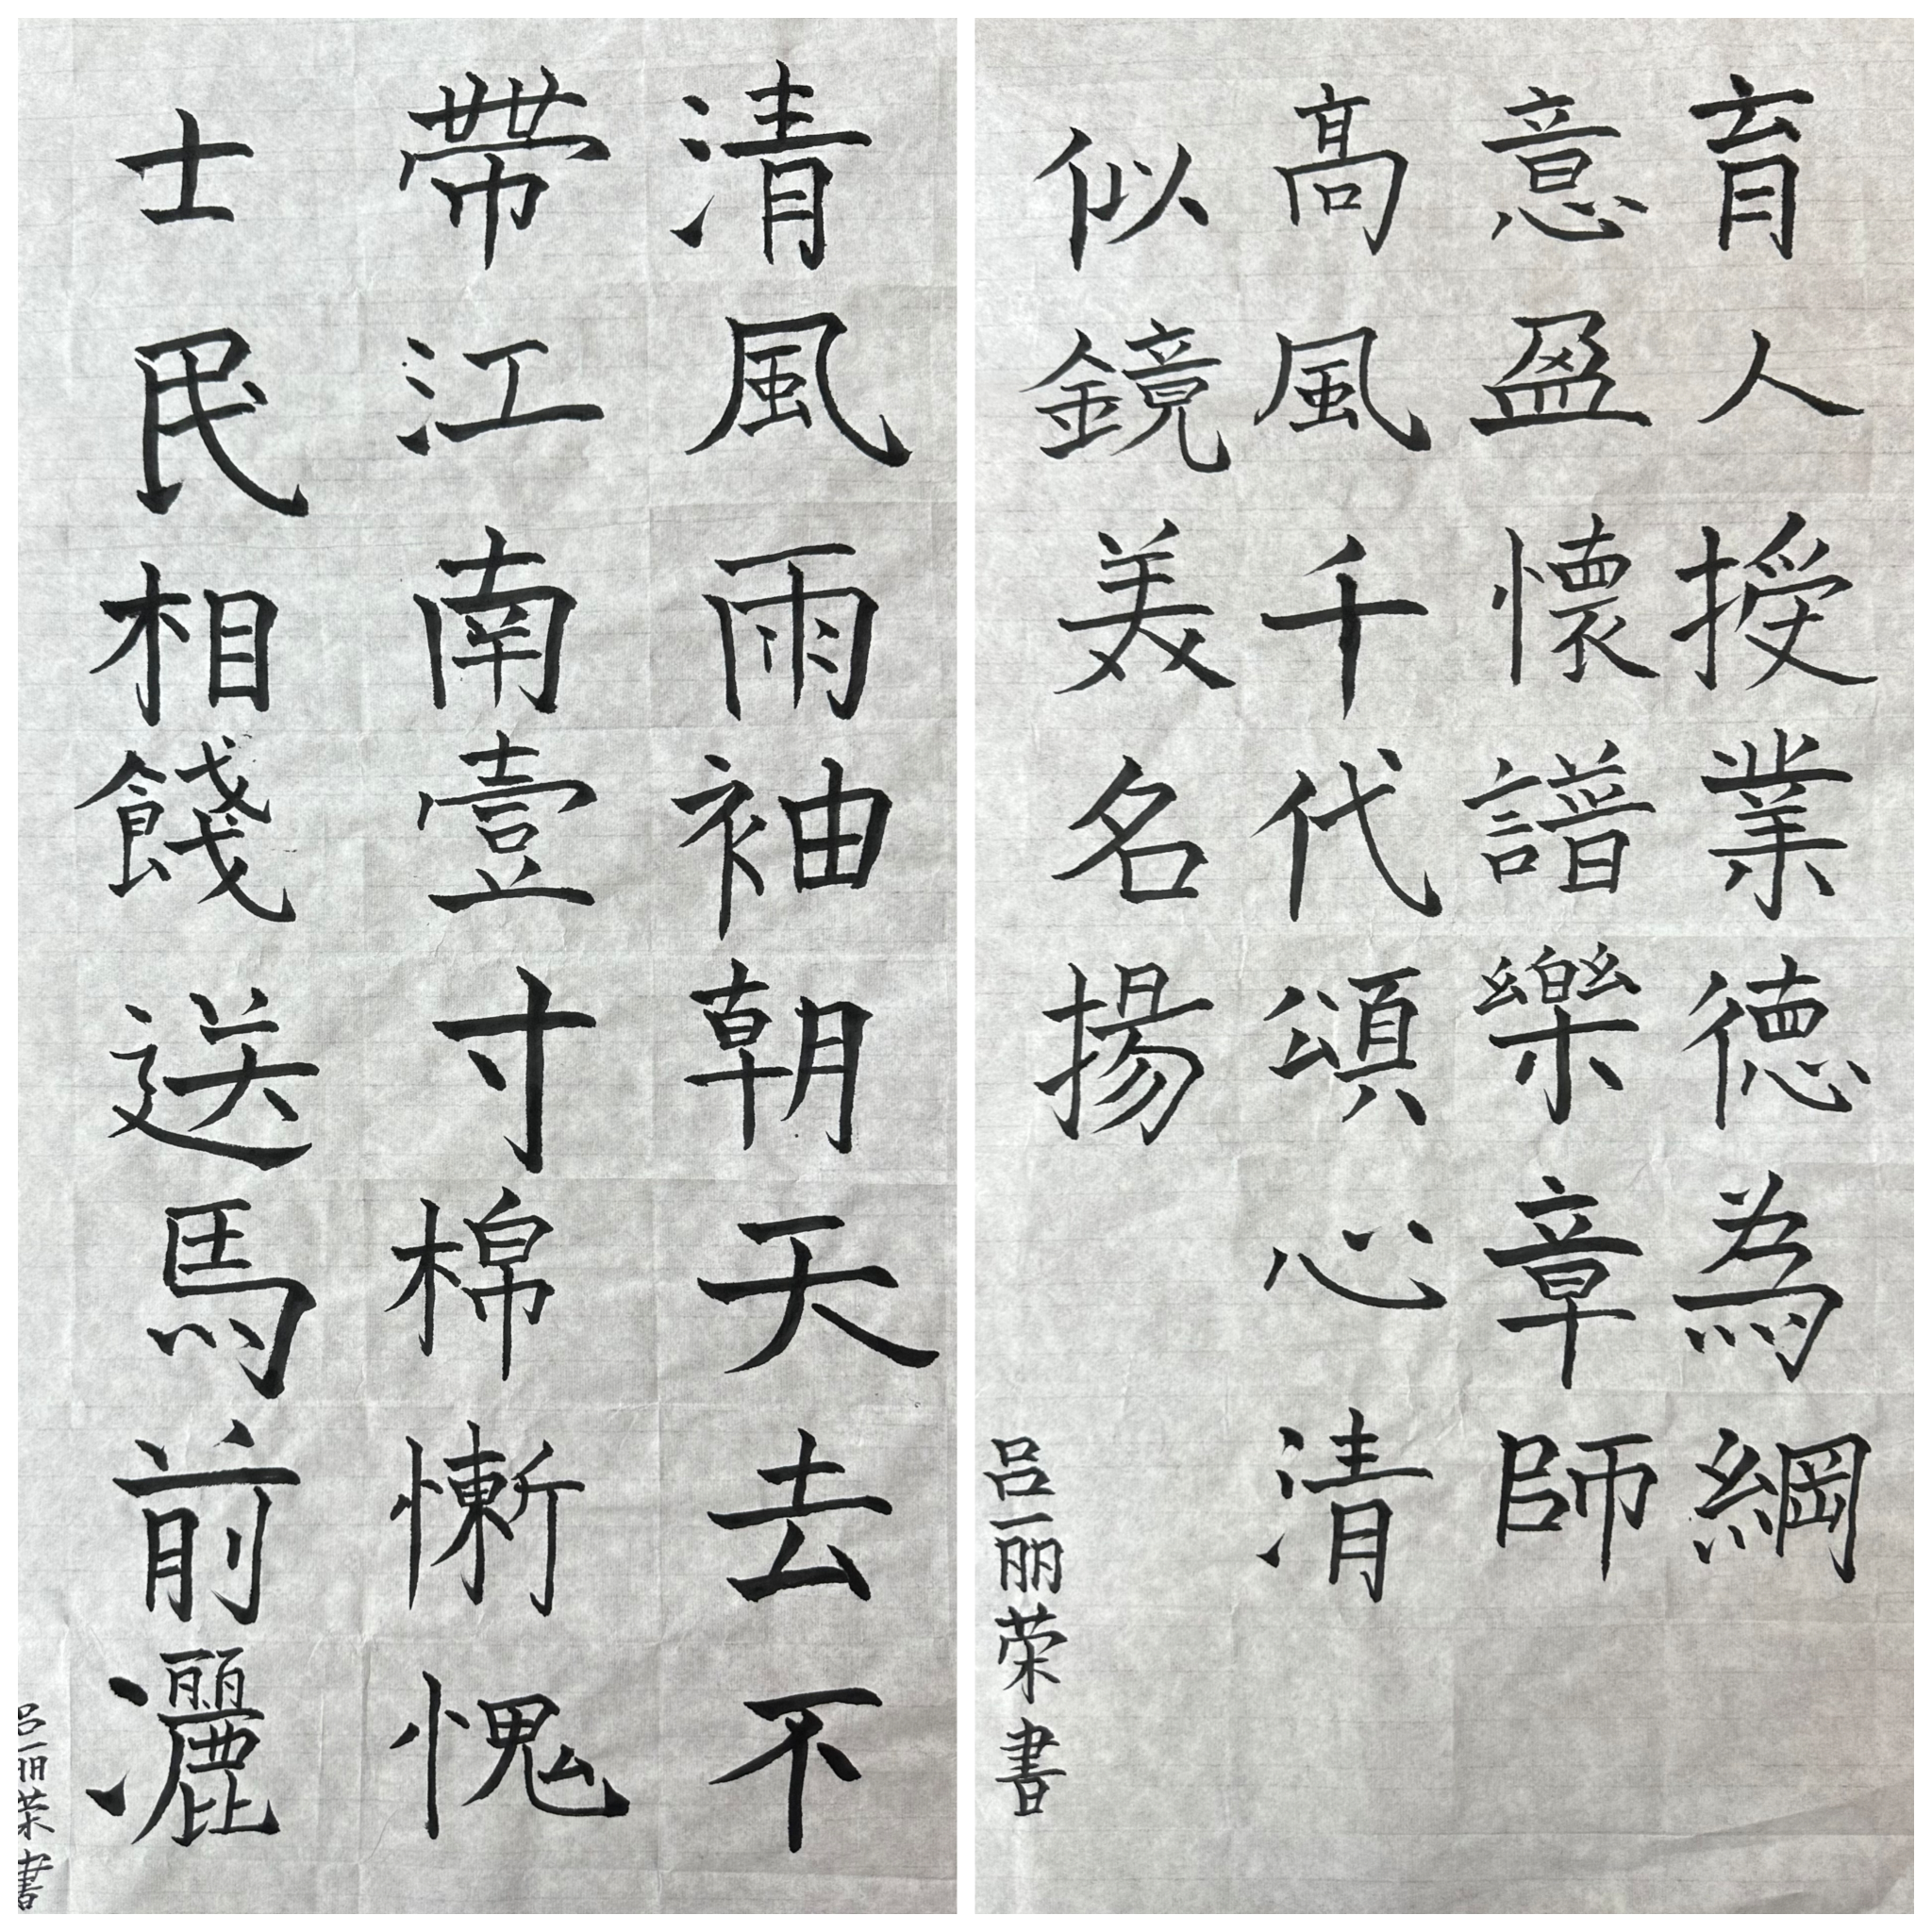 育人授業德為綱
意盈懷譜樂章師
高風千代頌心清
似鏡美名揚
吕丽荣書
清風雨袖朝天去不
帶江南壹寸棉慚愧
士民相餞送馬前灑
吕丽荣書